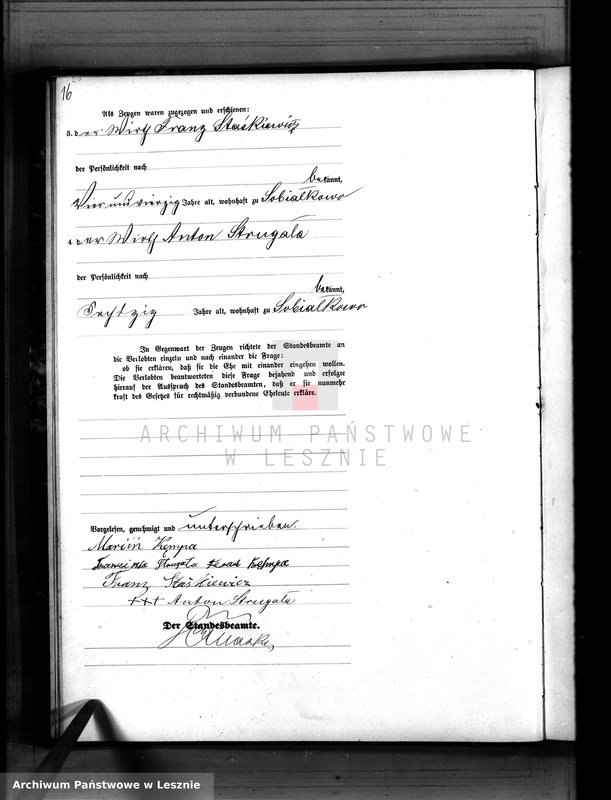 16
Als Zeugen waren zugezogen und erschienen:
3. der Wirth Franz Staśkiewicz
der Persönlichkeit nach
bekannt,
Vier und vierzig Jahre alt, wohnhaft zu Sobialkowo
4. der Wirth Anton Strugała
der Persönlichkeit nach
bekannt,
Sechszig Jahre alt, wohnhaft zu Sobialkowo
In Gegenwart der Zeugen richtete der Standesbeamte an
die Verlobten einzeln und nach einander die Frage:
ob sie erklären, daß sie die Ehe mit einander eingehen wollen.
Die Verlobten beantworteten diese Frage bejahend und erfolgte
hierauf der Ausspruch des Standesbeamten, daß er sie nunmehr
kraft des Gesetzes für rechtmäßig verbundene Eheleute erkläre.
ARCHIWUM PAŃSTWOWE
W LESZNIE
Vorgelesen, genehmigt und unterschrieben.
Marcin Kempa
Franciszka Strugała teraz Kempa
Franz Staśkiewicz
+++ Anton Strugała
Der Standesbeamte.
Archiwum Państwowe w Lesznie